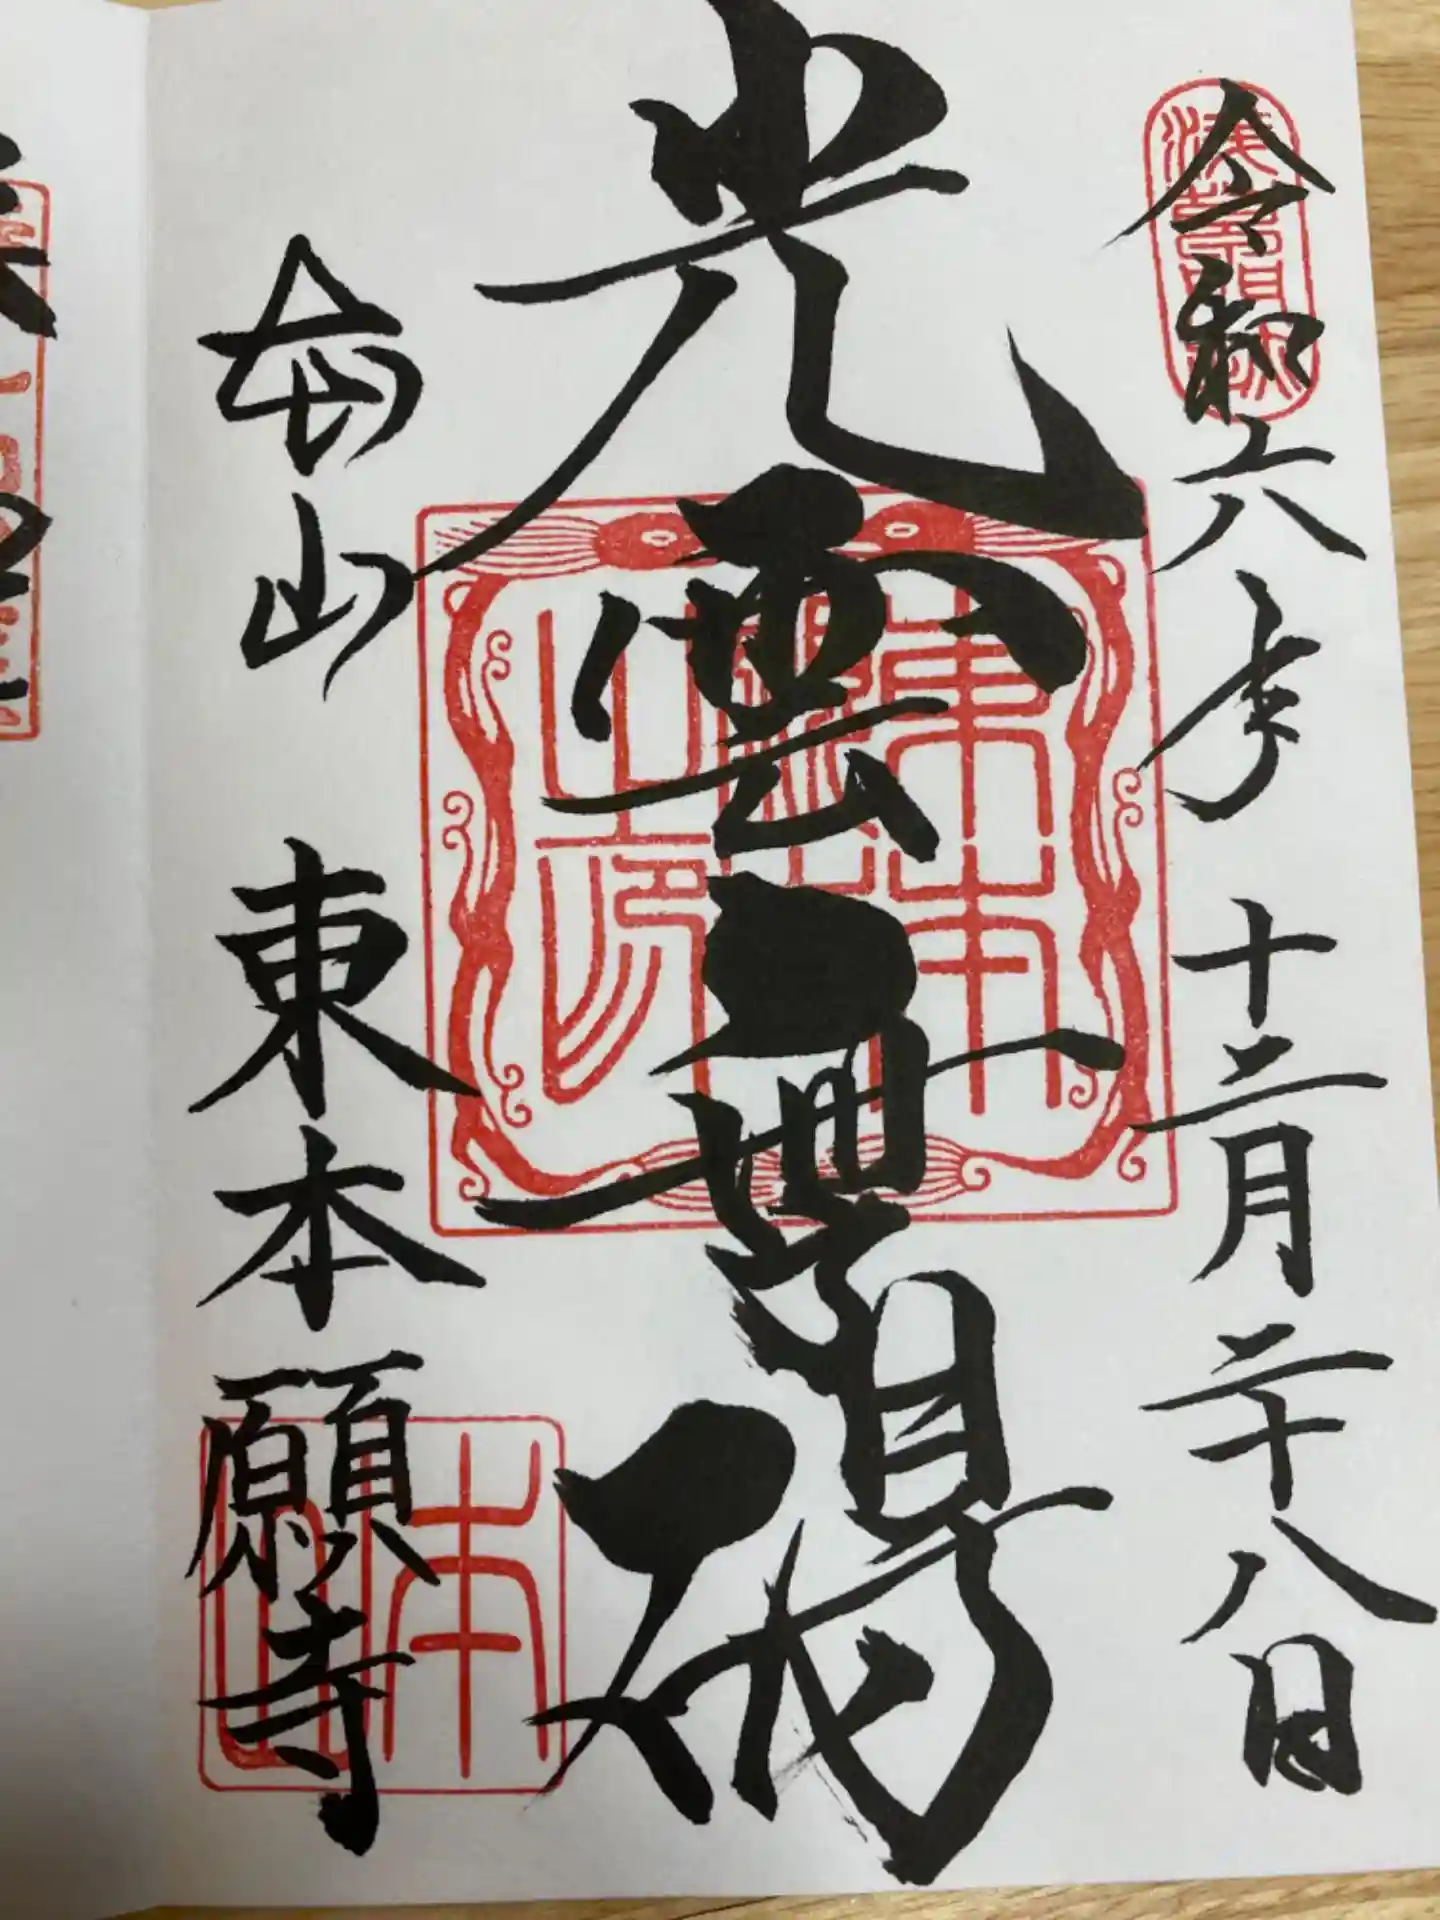 令和六年 十二月二十八日
光雲無碍
本山 東本願寺
本山